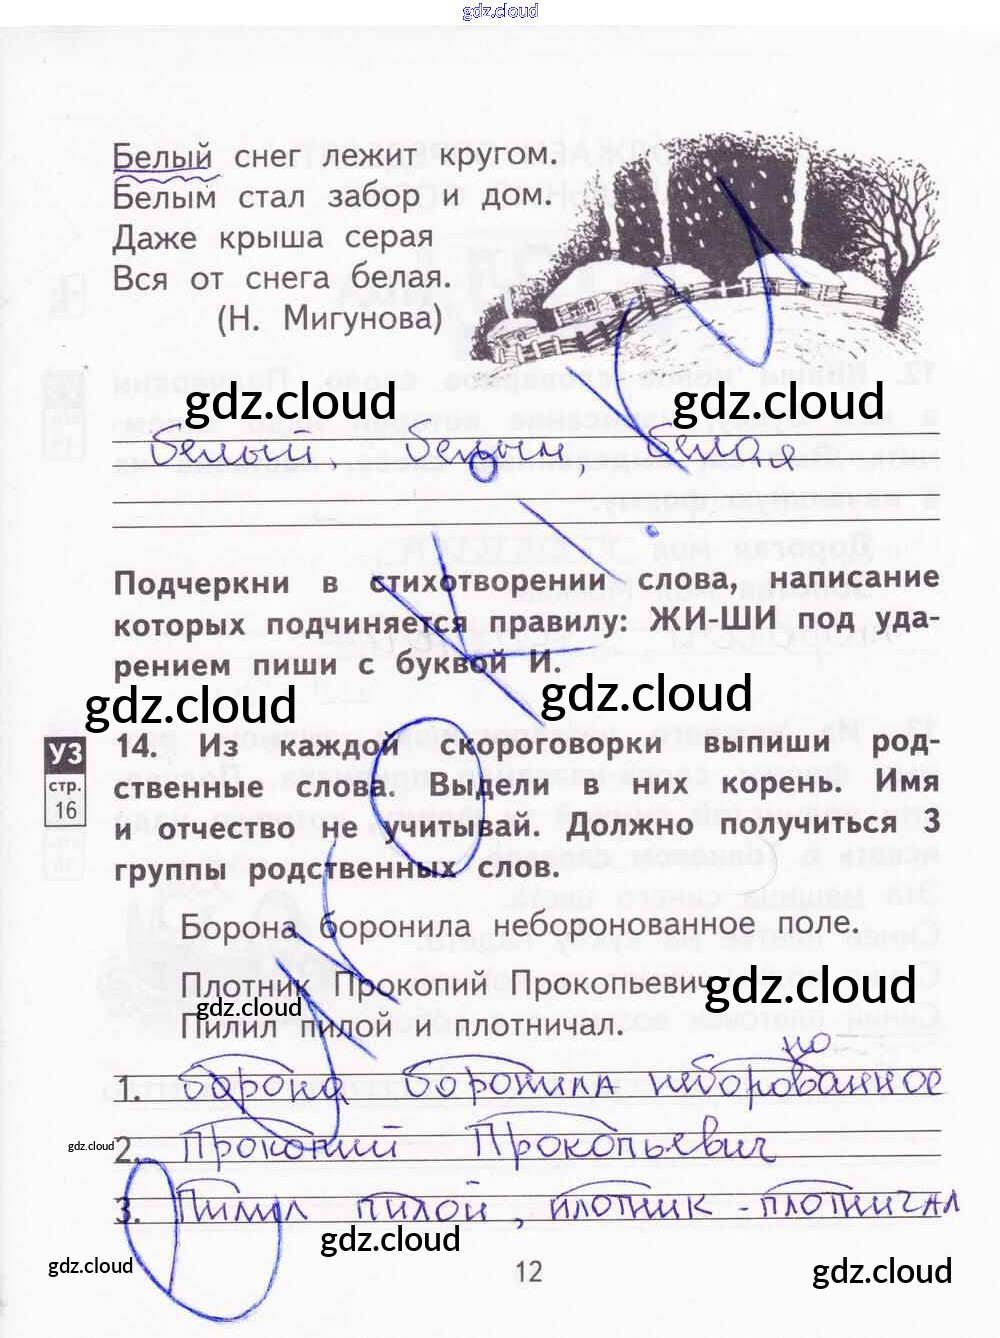 gdz.cloud
Белый снег лежит кругом.
Белым стал забор и дом.
Даже крыша серая
Вся от снега белая.
(Н. Мигунова)
gdz.cloud gdz.cloud
белый, белым, белая
Подчеркни в стихотворении слова, написание
которых подчиняется правилу: ЖИ-ШИ под уда-
рением пиши с буквой И.
gdz.cloud gdz.cloud
УЗ
стр.
16
14. Из каждой скороговорки выпиши род-
ственные слова. Выдели в них корень. Имя
и отчество не учитывай. Должно получиться 3
группы родственных слов.
Борона боронила неборонованное поле.
Плотник Прокопий Прокопьевич
gdz.cloud
gdz.cloud
Пилил пилой и плотничал.
но
1. борона боронила неборованное
gdz.cloud
2. Прокопий Прокопьевич
3. Пилил пилой, плотник - плотничал
gdz.cloud
gdz.cloud
12
gdz.cloud